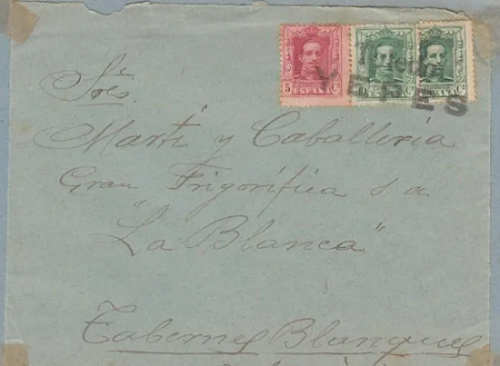 5 Cs
ESPAÑA
ESPAÑA
Sres.
Marti y Caballeria
Gran Frigorífica s. a.
"La Blanca"
Tabernes Blanques